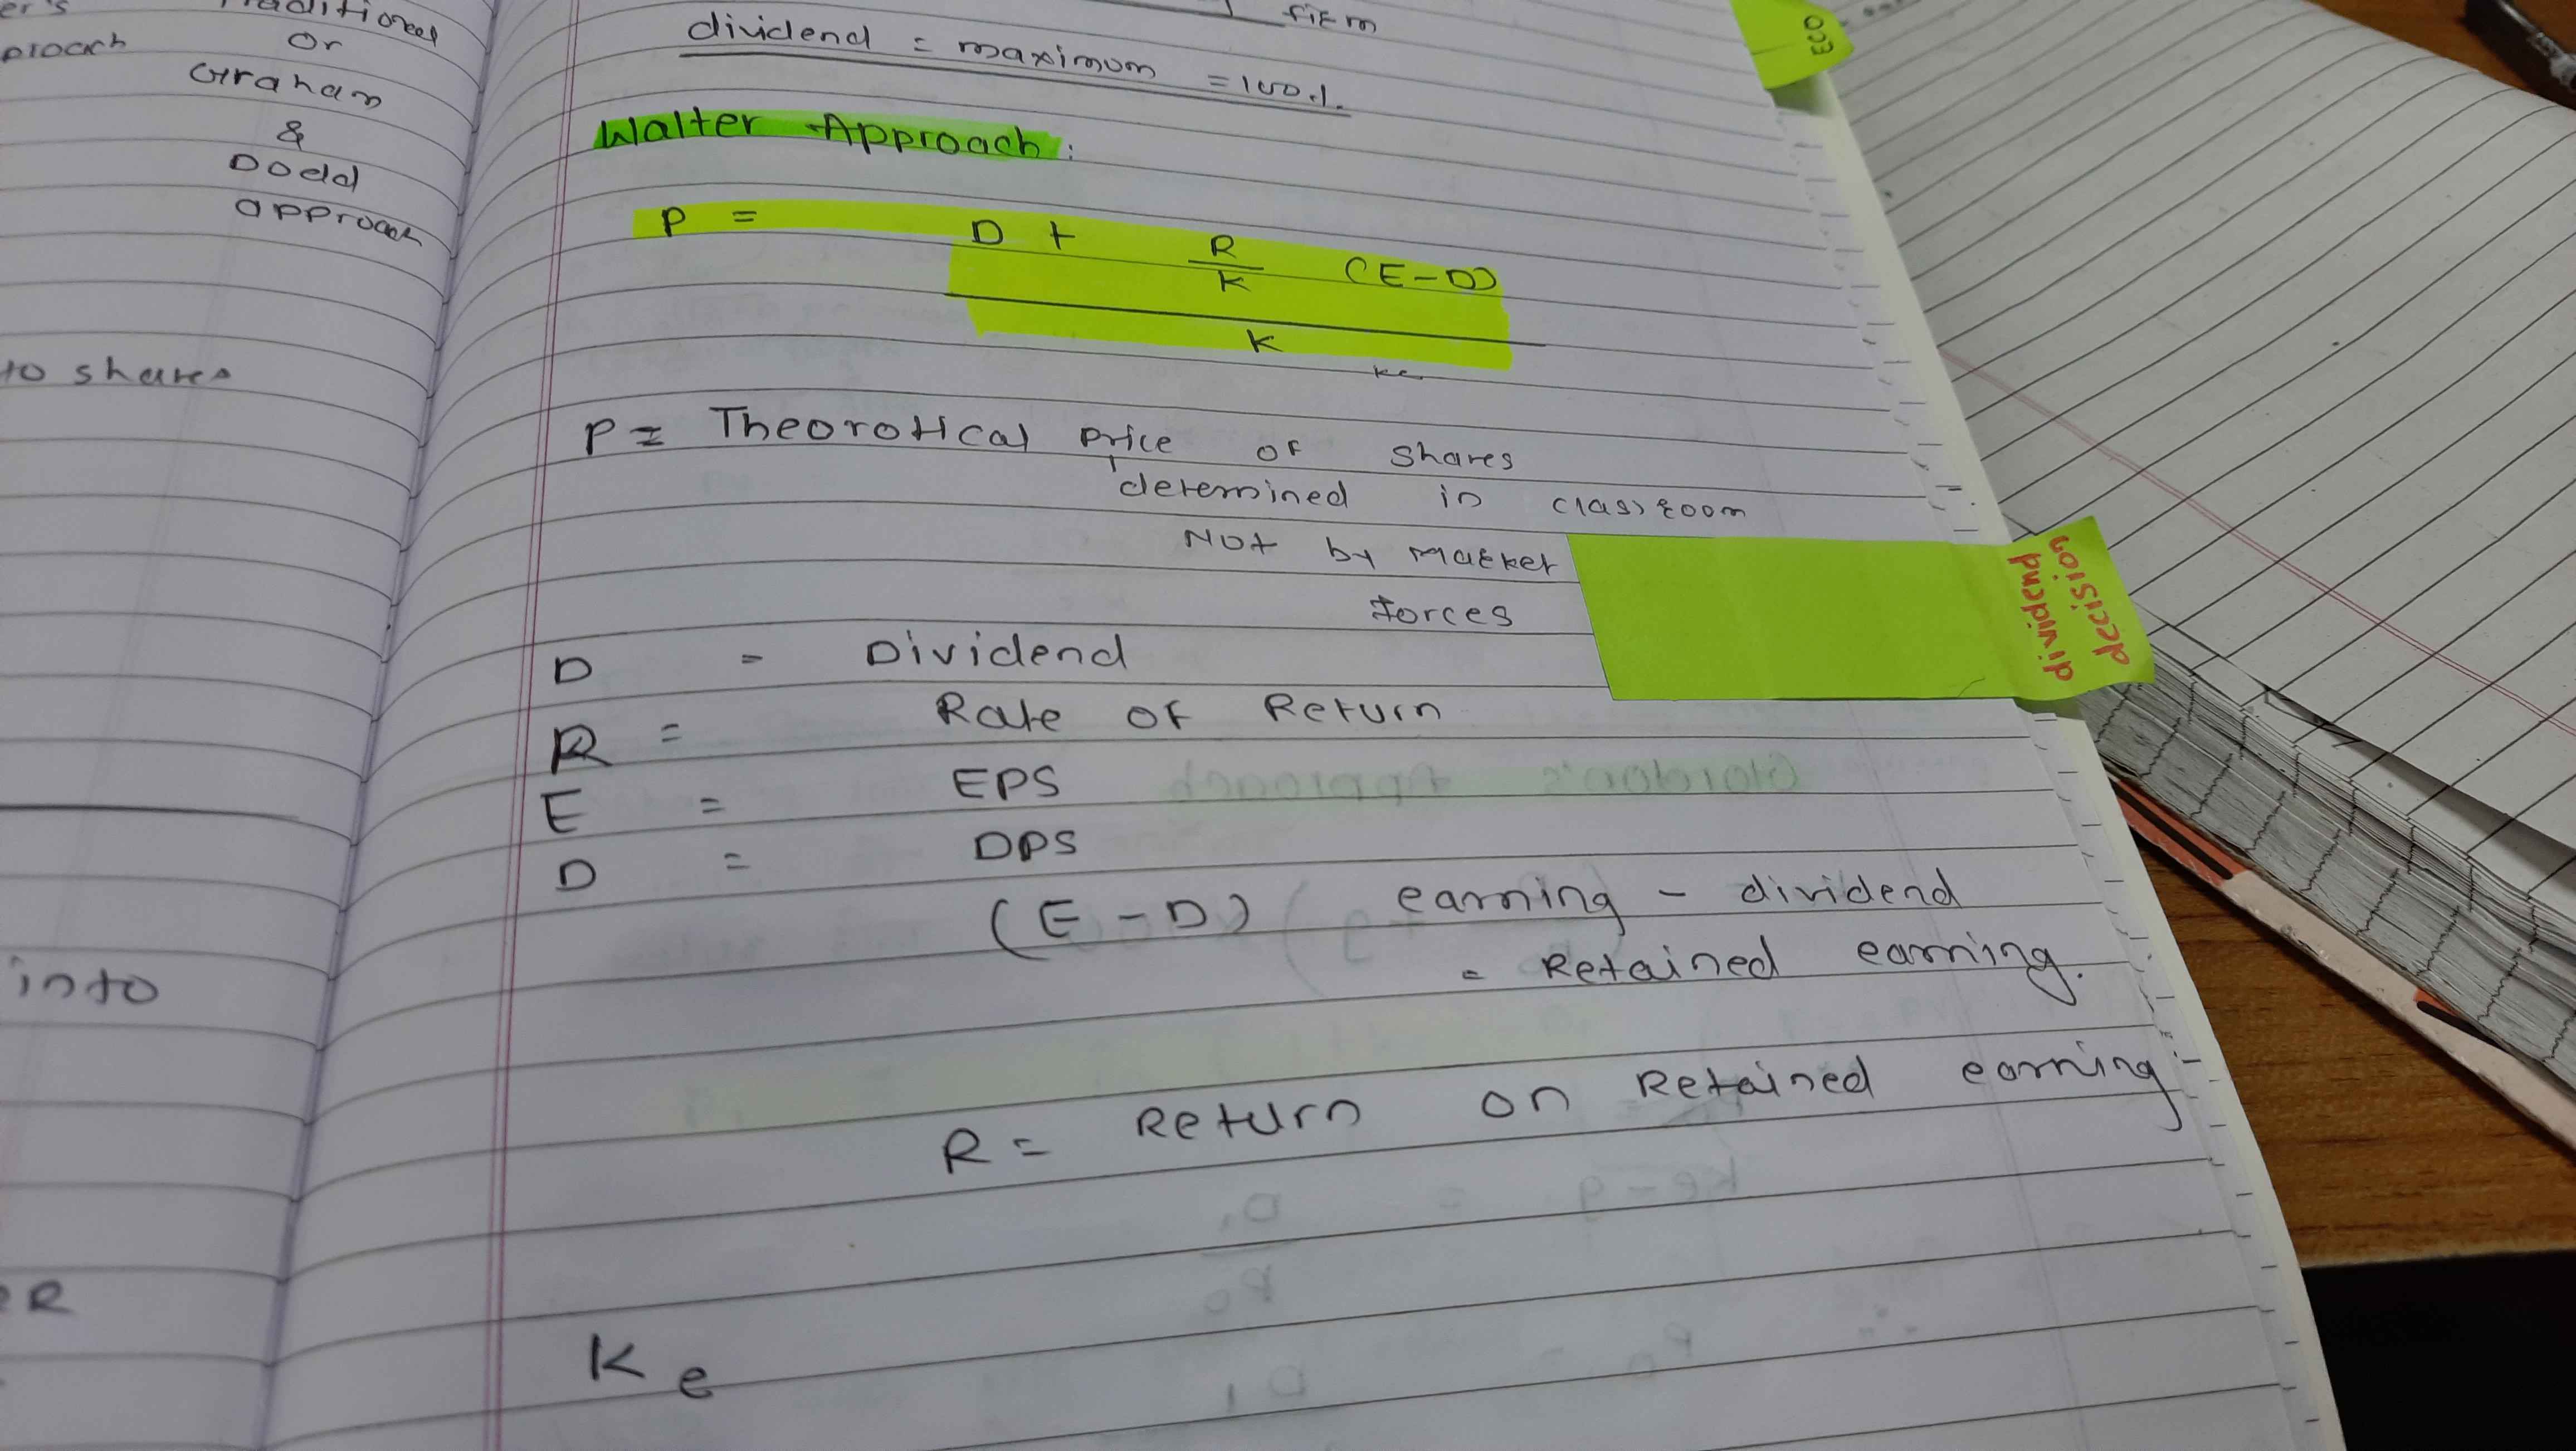 er's Traditional
proach or
Graham
&
Dodd
approach
to shares
into
R
firm
dividend = maximum = 100%.
Walter Approach:
P = D + R/K (E-D)
K
Ke
P = Theorotical price of shares
determined in classroom
Not by market
forces
D = Dividend
R = Rate of Return
E = EPS
D = DPS
(E-D) earning - dividend
= Retained earning.
R = Return on Retained earning
Ke
ECO
dividend
decision